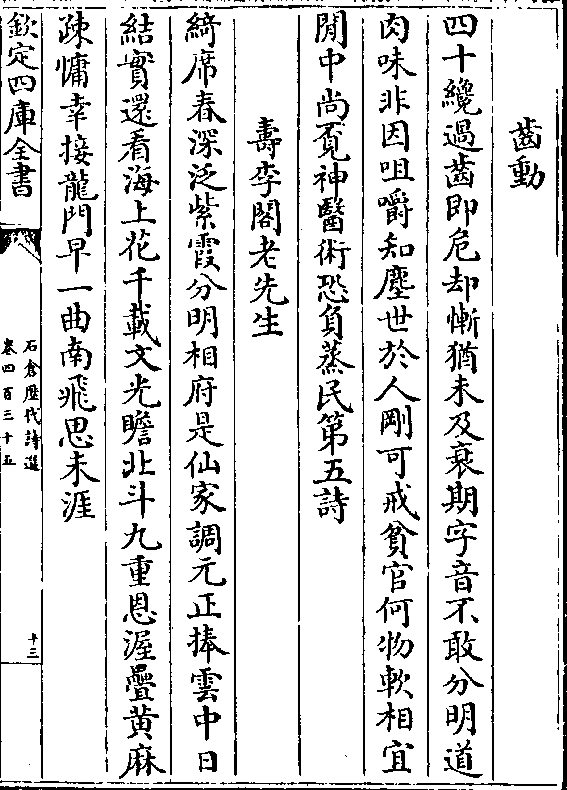 齒動
四十纔過齒即危却慚猶未及衰期字音不敢分明道
肉味非因咀嚼知塵世於人剛可戒貧官何物軟相宜
閒中尚覔神醫術恐負蒸民第五詩
壽李閣老先生
綺席春深泛紫霞分明相府是仙家調元正捧雲中日
結實還看海上花千載文光瞻北斗九重恩渥疊黄麻
疎慵幸接龍門早一曲南飛思未涯
欽定四庫全書
石倉歷代詩選
卷四百三十五
十三